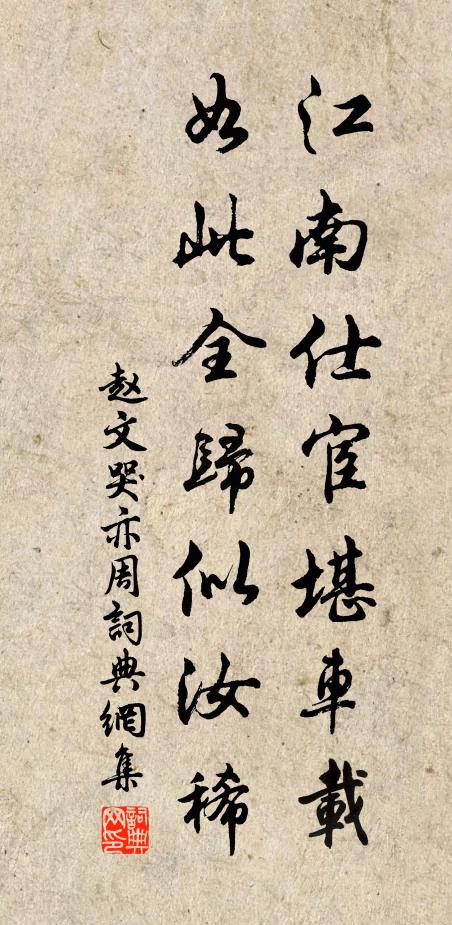 江南仕宦堪車載
如此全歸似汝稀
赵文哭亦周詞典網集
詞典網印